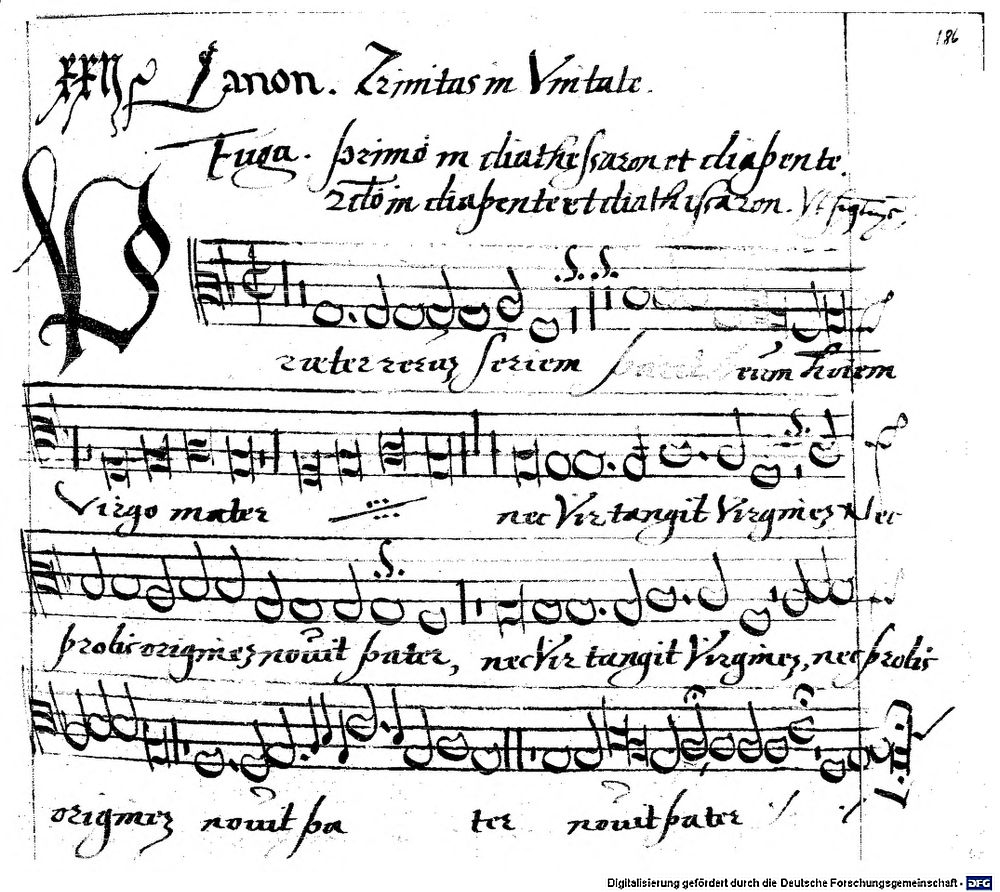 186
XXII Canon. Trinitas in Vnitate.
Fuga. primo in diathessaron et diapente.
2do in diapente et diathessaron. Vt
Præter rerum seriem eum hoiem
Virgo mater nec Vir tangit Virginez Nec
prolis originez novit pater, nec Vir tangit Virginez, nec prolis
originez novit pa ter novit pater
Digitalisierung gefördert durch die Deutsche Forschungsgemeinschaft - DFG